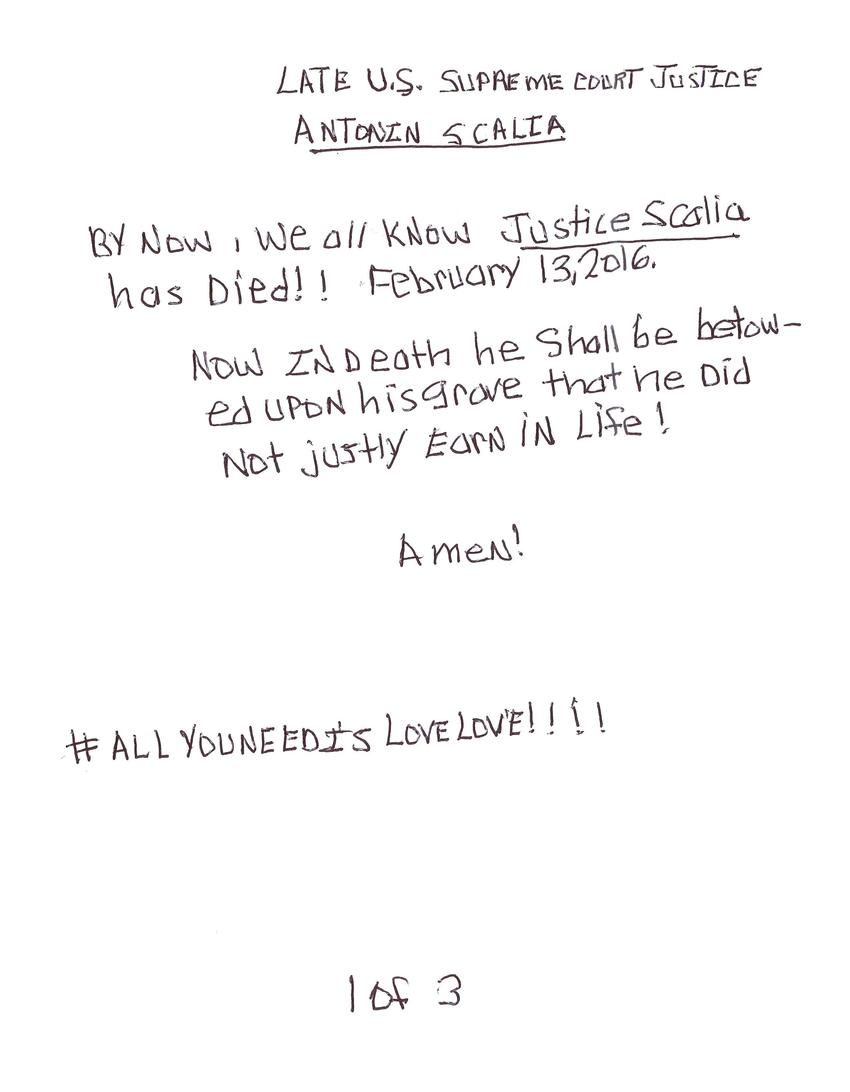 LATE U.S. SUPREME COURT JUSTICE
ANTONIN SCALIA
BY NOW, WE all KNOW Justice Scalia
has Died!! February 13, 2016.
NOW IN Death he Shall be betow-
ed UPON his grave that he Did
Not justly EarN iN Life!
AmeN!
# ALL YOUNEEDIS LOVE LOVE!!!!
1 of 3